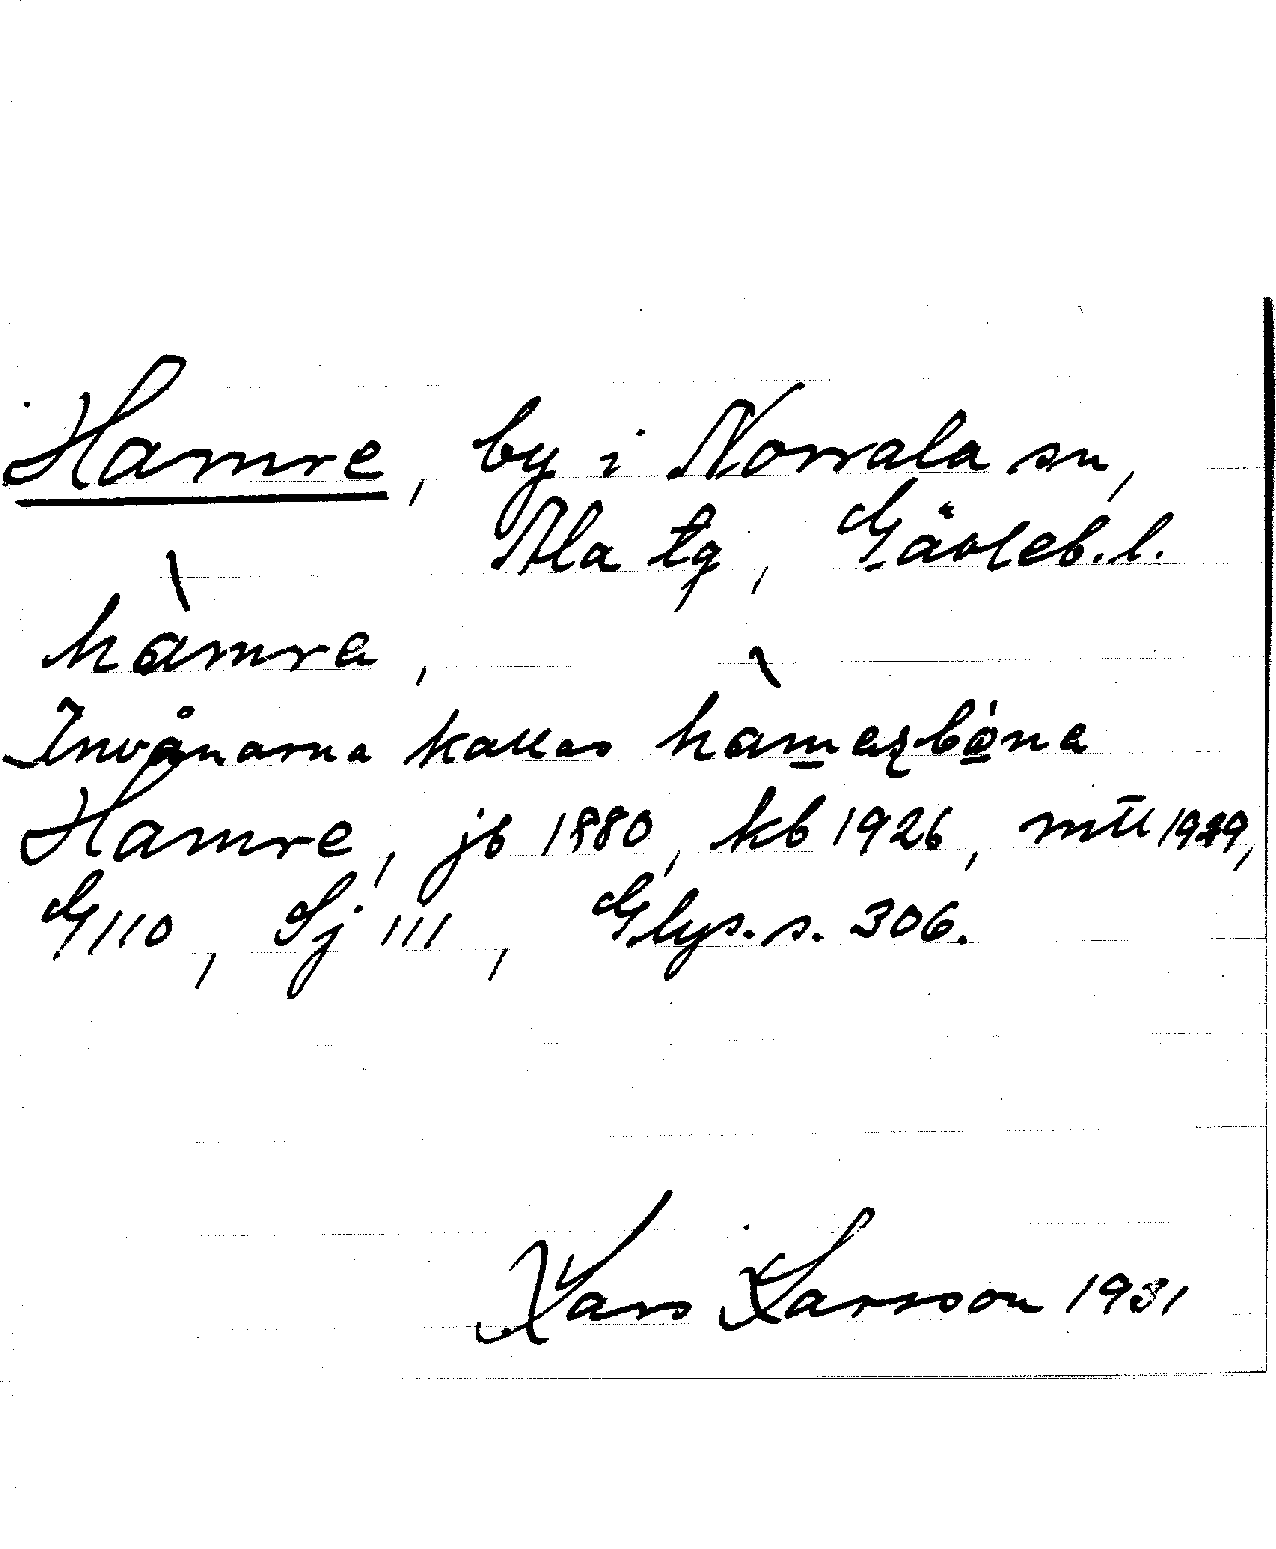 Hamre, by i Norrala sn,
Ala tg, Gävleb. l.
hàmra,
Invånarna kallas
Hamre, jb 1880, kb 1926, mtl 1929,
G 110, Sj 111, Glys. s. 306.
Lars Larsson 1931